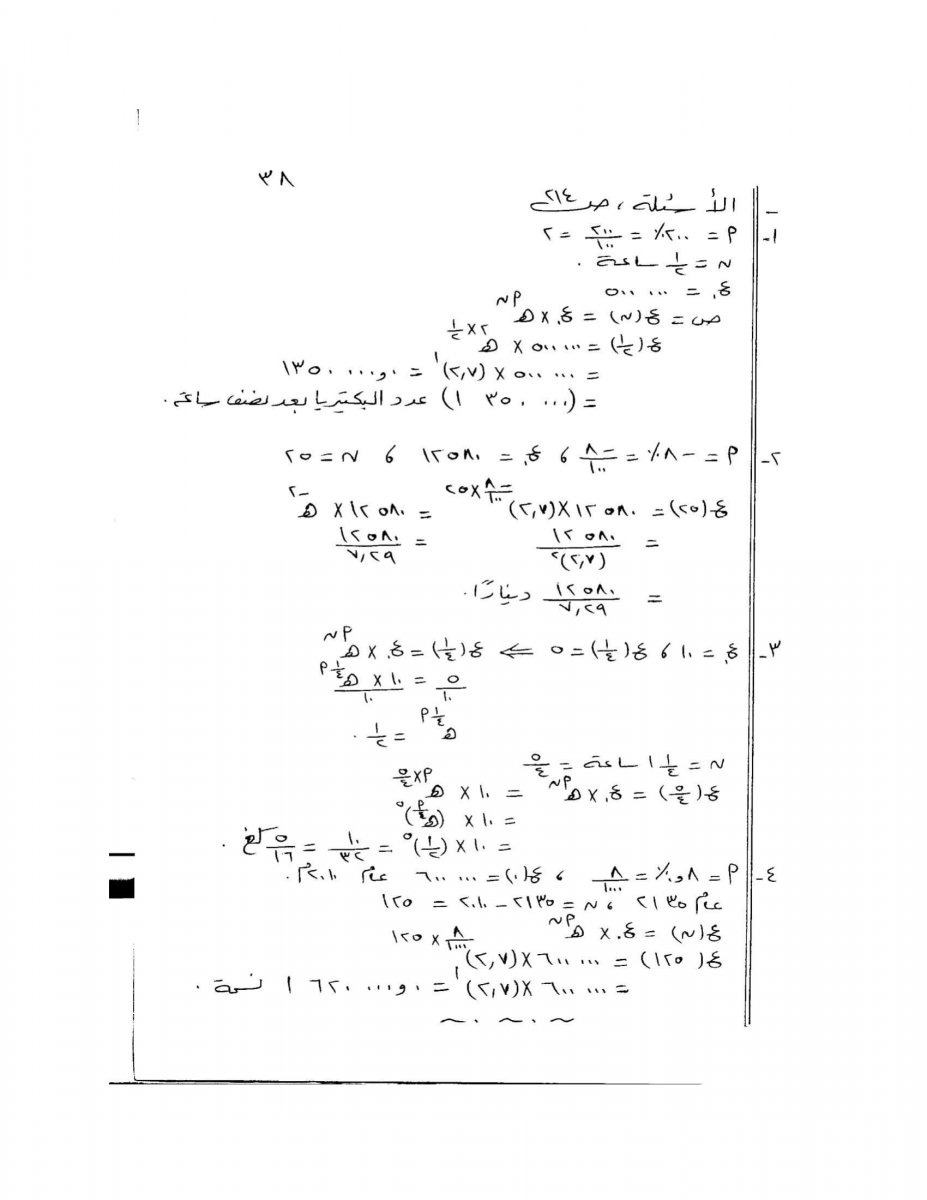 ٣٨
الأسئلة ، ص ٢١٤
١- م = ٢٠٠٪ = ٢٠٠/١٠٠ = ٢
ن = ١/٢ ساعة .
ع. = ٥٠٠ ٠٠٠
ص = ع(ن) = ع. × هـ^(م ن)
ع(١/٢) = ٥٠٠ ٠٠٠ × هـ^(٢ × ١/٢)
= ٥٠٠ ٠٠٠ × (٢,٧)^١ = ١٣٥٠ ٠٠٠,٠
= (١ ٣٥٠ ٠٠٠) عدد البكتيريا بعد نصف ساعة .
٢- م = -٨٪ = -٨/١٠٠ ، ع. = ١٢٥٨٠ ، ن = ٢٥
ع(٢٥) = ١٢٥٨٠ × (٢,٧)^(-٨/١٠٠ × ٢٥) = ١٢٥٨٠ × هـ^-٢
= ١٢٥٨٠/(٢,٧)^٢ = ١٢٥٨٠/٧,٢٩
= ١٢٥٨٠/٧,٢٩ دينارًا .
٣- ع. = ١٠ ، ع(١/٤) = ٥ ⇐ ع(١/٤) = ع. × هـ^(م ن)
٥/١٠ = ١٠ × هـ^(١/٤ م)/١٠
هـ^(١/٤ م) = ١/٢ .
ن = ١ ١/٤ ساعة = ٥/٤
ع(٥/٤) = ع. × هـ^(م ن) = ١٠ × هـ^(م × ٥/٤)
= ١٠ × (هـ^(م/٤))^٥
= ١٠ × (١/٢)^٥ = ١٠/٣٢ = ٥/١٦ كلغ .
٤- م = ٠,٨٪ = ٨/١٠٠٠ ، ع(٠) = ٦٠٠ ٠٠٠ عام ٢٠١٠م .
عام ٢١٣٥ ، ن = ٢١٣٥ - ٢٠١٠ = ١٢٥
ع(ن) = ع. × هـ^(م ن)
ع(١٢٥) = ٦٠٠ ٠٠٠ × (٢,٧)^(٨/١٠٠٠ × ١٢٥)
= ٦٠٠ ٠٠٠ × (٢,٧)^١ = ١ ٦٢٠ ٠٠٠,٠ نسمة .